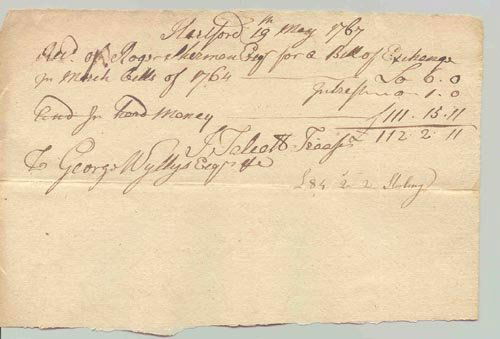 Hartford 19th May 1767
Recd. of Roger Sherman Esqr for a Bill of Exchange
in March Bills of 1764 £0 6. 0
Interest 0. 1. 0
And in hard Money £111. 15. 11
J Talcott Treasr 112. 2. 11
To George Wyllys Esqr &c
£84 2 2 Sterling